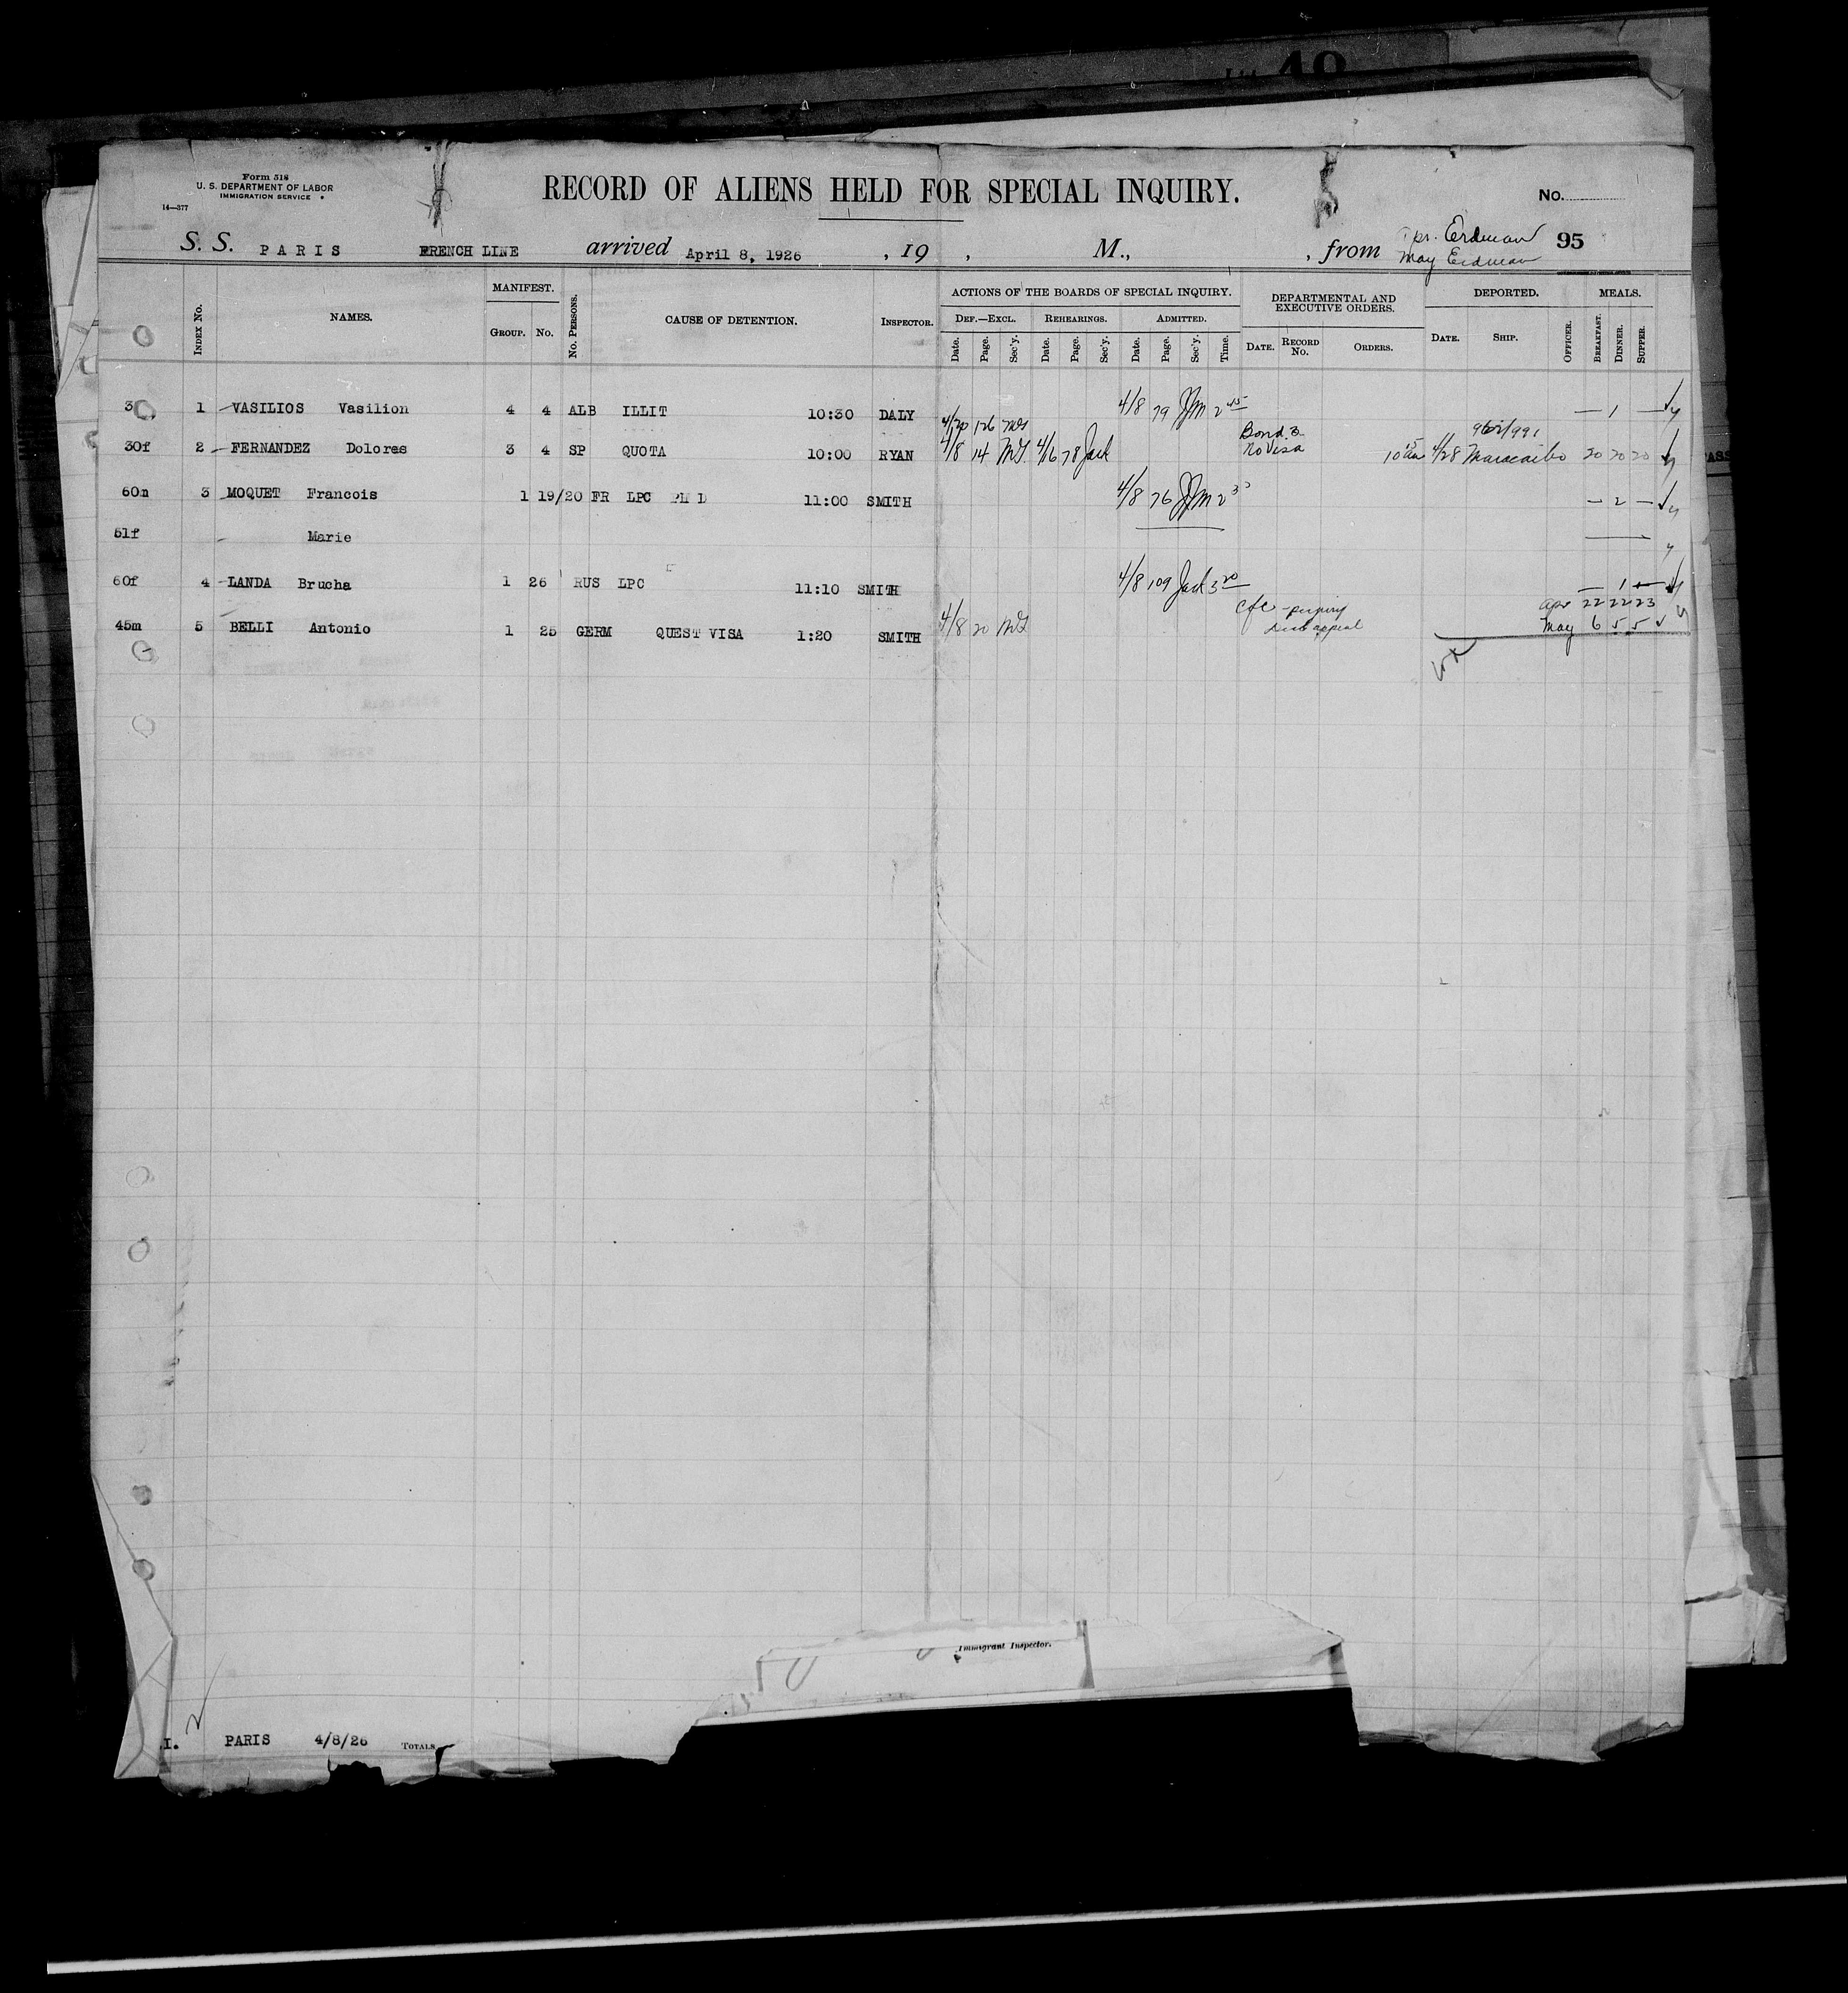 40
Form 518
U. S. DEPARTMENT OF LABOR
IMMIGRATION SERVICE
14—377
RECORD OF ALIENS HELD FOR SPECIAL INQUIRY.
No.
S. S. PARIS FRENCH LINE arrived April 8, 1926 , 19 , M., , from Apr. Erdman 95
May Erdman
Index No. NAMES. MANIFEST. Group. No. No. Persons. CAUSE OF DETENTION. Inspector. ACTIONS OF THE BOARDS OF SPECIAL INQUIRY. DEPARTMENTAL AND EXECUTIVE ORDERS. DEPORTED. MEALS.
Def.—Excl. Rehearings. Admitted.
Date. Page. Sec'y. Date. Page. Sec'y. Date. Page. Sec'y. Time. Date. Record No. Orders. Date. Ship. Officer. Breakfast. Dinner. Supper.
1 VASILIOS Vasilion 4 4 ALB ILLIT 10:30 DALY 4/8 79 JJM 2 45 — 1 —
4/20 126 Bond & 962/991
30f 2 FERNANDEZ Dolores 3 4 SP QUOTA 10:00 RYAN 4/8 14 4/16 78 Jack No Visa 10 4/28 Maracaibo 20 20 20
60m 3 MOQUET Francois 1 19/20 FR LPC PH D 11:00 SMITH 4/8 76 JJM 2 — 2 —
51f Marie
60f 4 LANDA Brucha 1 26 RUS LPC 11:10 SMITH 4/8 109 Jack 3 20 — 1 —
Apr 22 22 23
45m 5 BELLI Antonio 1 25 GERM QUEST VISA 1:20 SMITH 4/8 20 appeal May 6 5 5
Immigrant Inspector.
I. PARIS 4/8/26 Totals